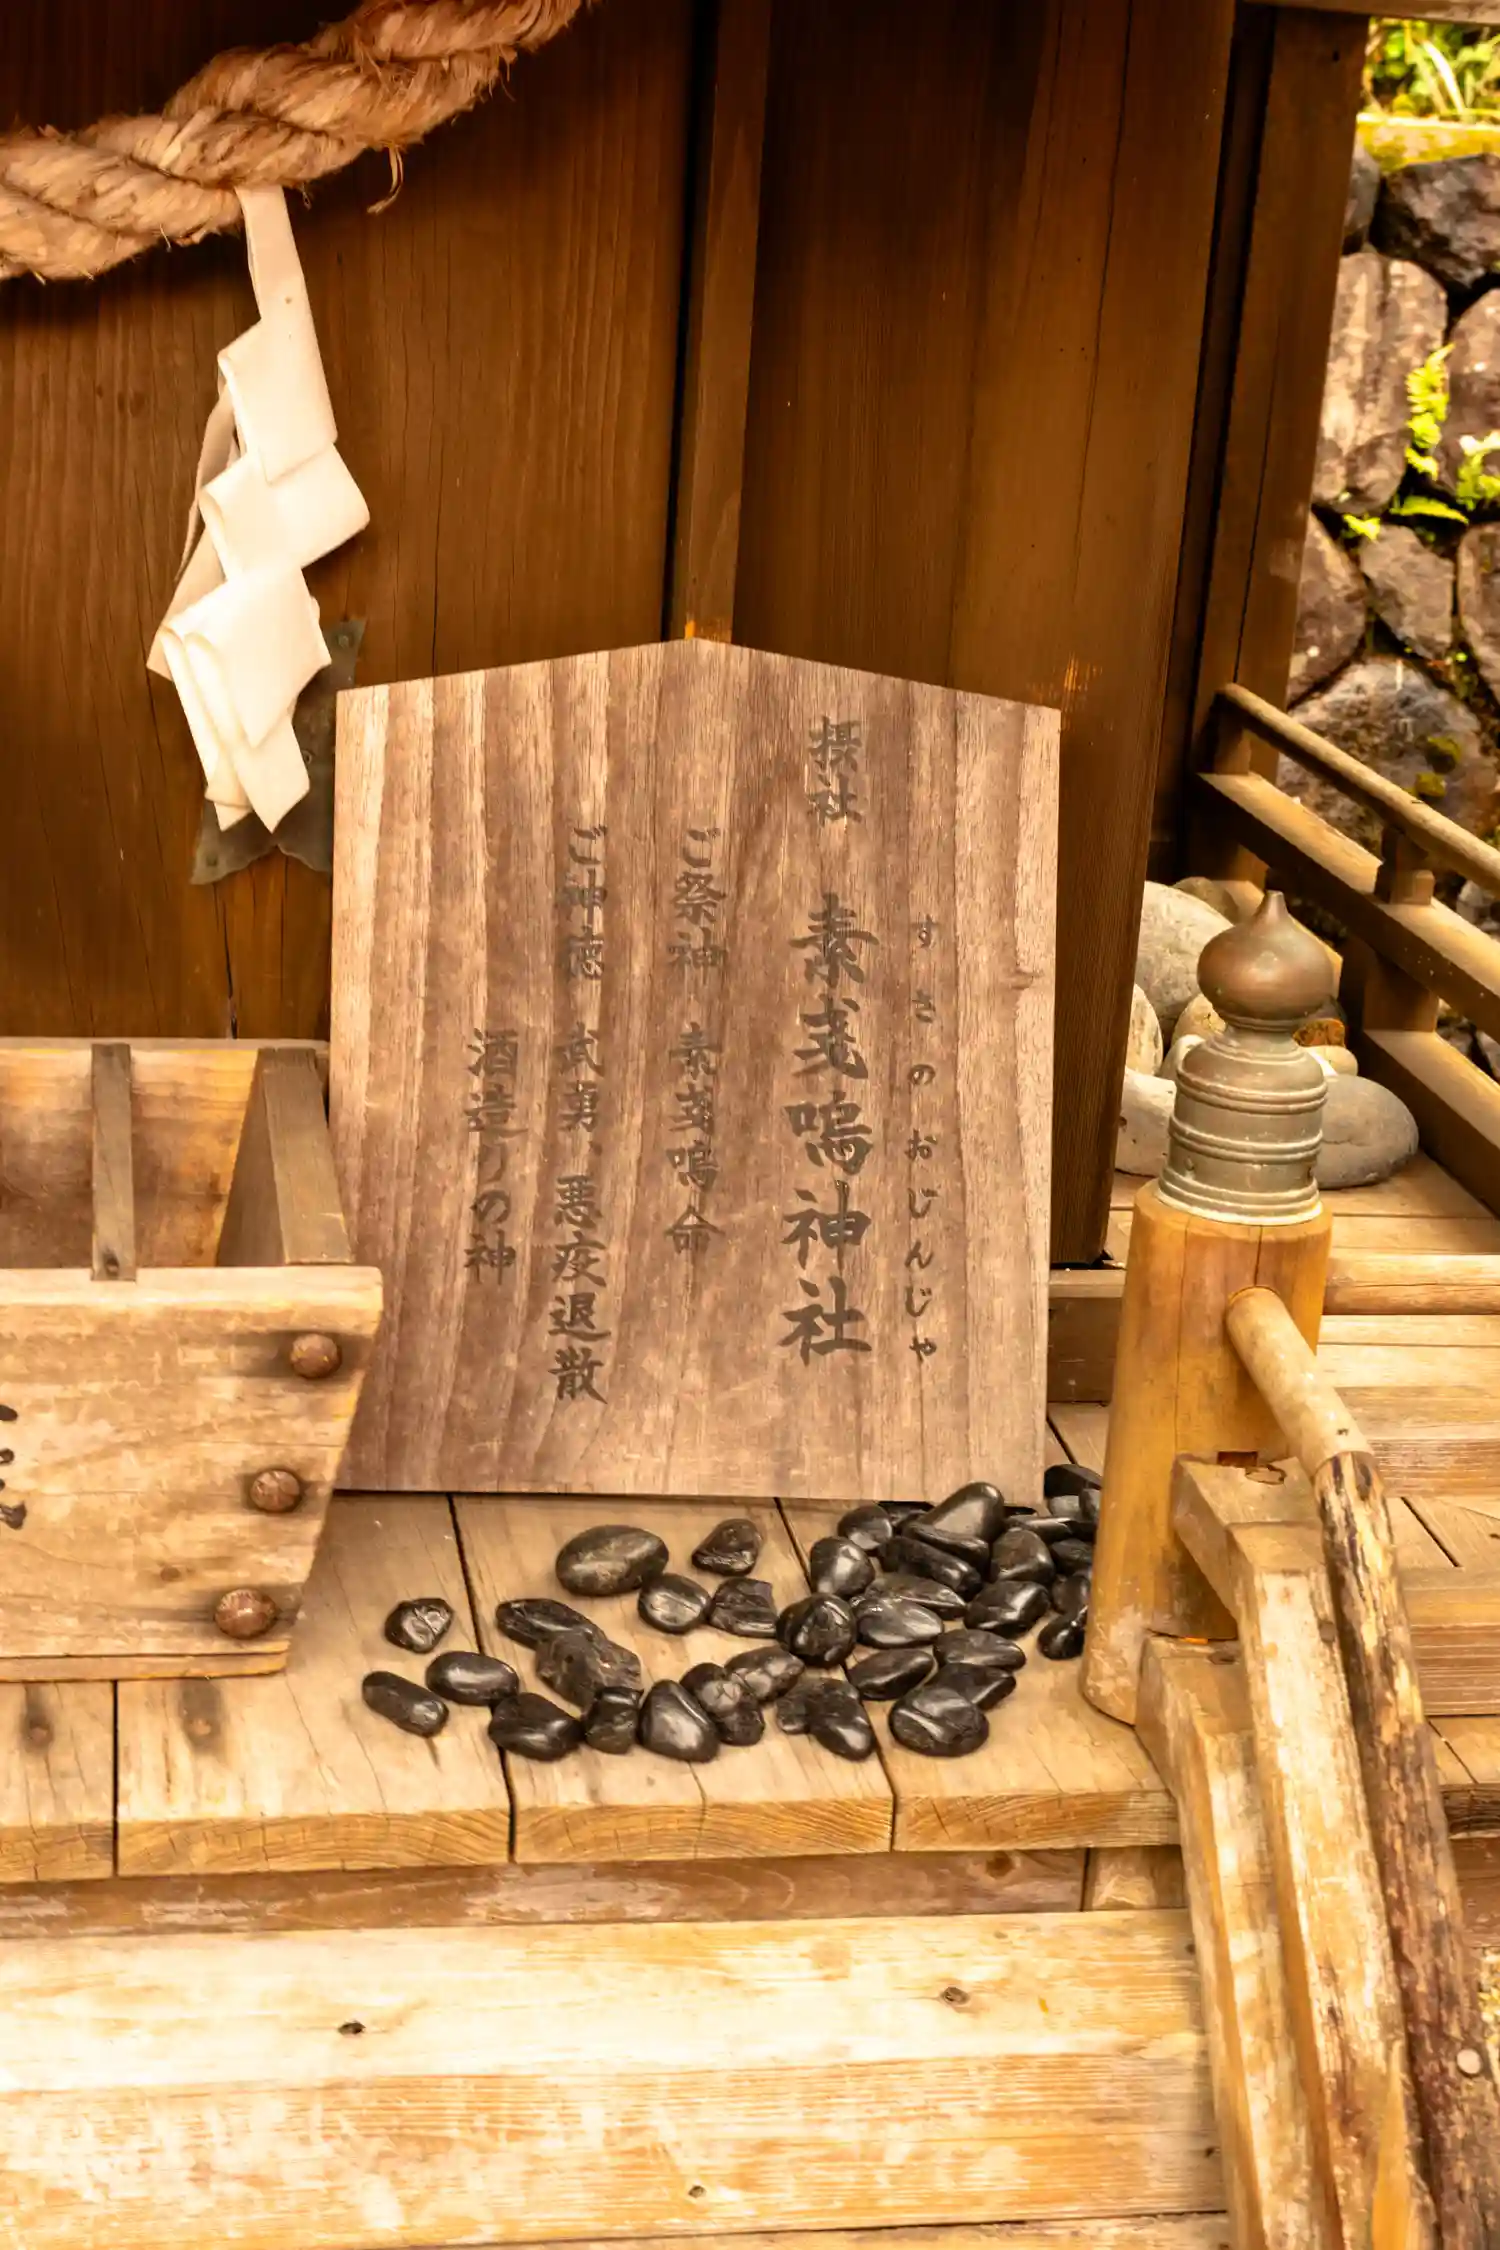 すさのおじんじゃ
摂社 素戔嗚神社
ご祭神 素戔嗚命
ご神徳 武勇、悪疫退散
酒造りの神